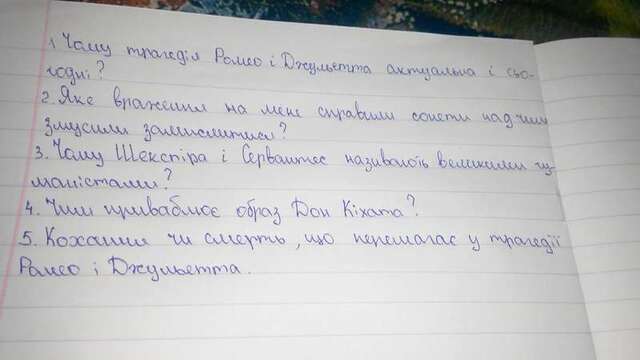 1 Чому трагедія Ромео і Джульєтта актуальна і сьо-
годні?
2. Яке враження на мене справили сонети над чим
змусили замислитися?
3. Чому Шекспіра і Сервантес називають великими гу-
маністами?
4. Чим приваблює образ Дон Кіхата?
5. Кохання чи смерть, що перемагає у трагедії
Ромео і Джульєтта.